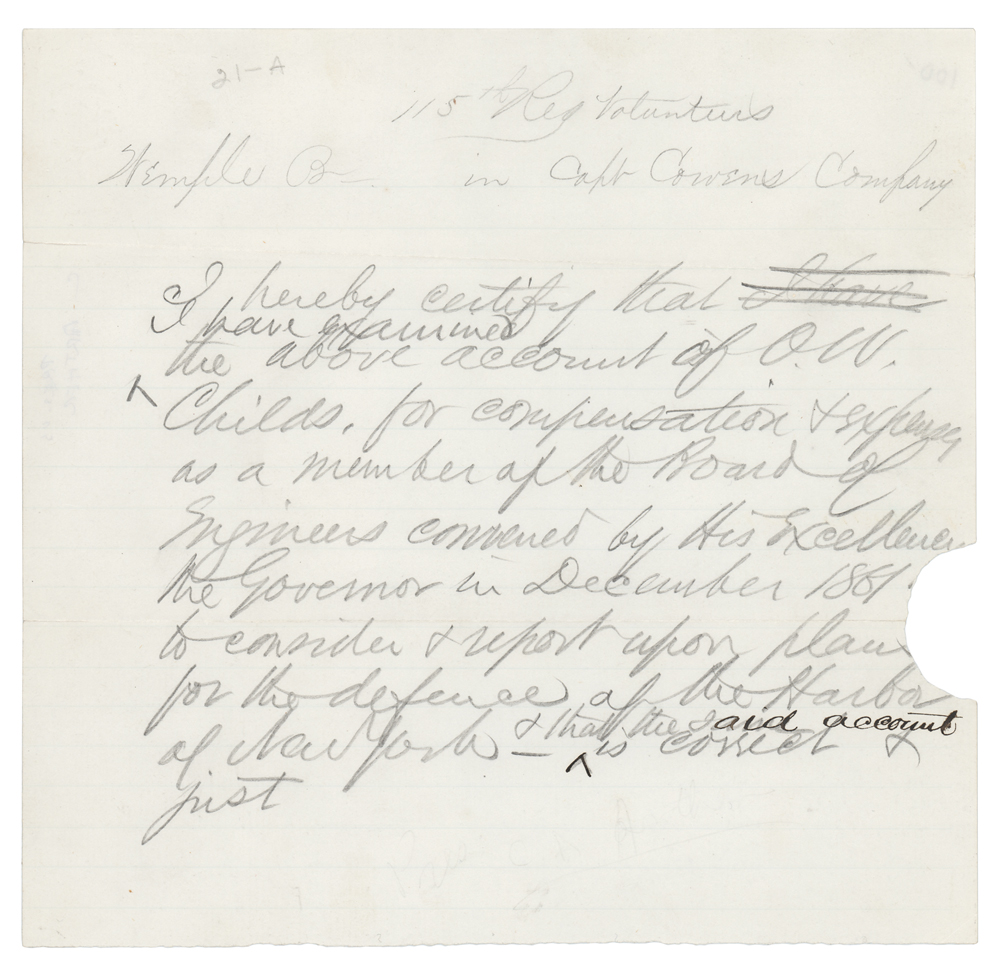 21-A
115th Reg Volunteers
Wemple B— in Capt Cowens Company
I hereby certify that I have
I have examined
the above account of O.W.
Childs, for compensation & expenses
as a member of the Board of
Engineers convened by His Excellency
the Governor in December 1861.
to consider & report upon plans
for the defence of the Harbor
& that the said account
of New York — is correct &
just